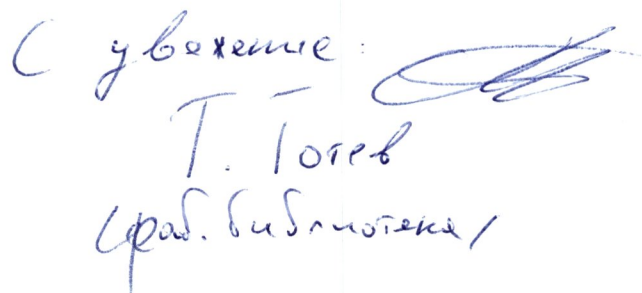 С уважение:
Т. Готев
/раб. библиотека/